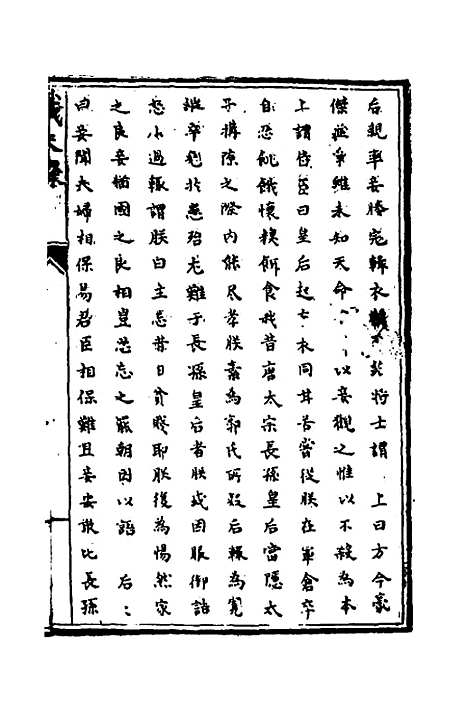 后親率妾媵完緝衣鞵衣於將士謂 上曰方今豪
傑並爭雖未知天命 以妾觀之惟以不殺為本
上謂侍臣曰皇后起 布衣同甘苦嘗從朕在軍倉卒
自忍飢餓懷糗餌食我昔唐太宗長孫皇后當隱太
子搆隙之際內能尽孝朕素為郭氏所疑后輒為寬
解卒免於患殆尤難于長孫皇后者朕或因服御詰
怒小過輒謂朕曰主忘昔日貧賤耶朕復為惕然家
之良妻猶國之良相豈忍忘之罷朝因以語 后后
曰妾聞夫婦相保易君臣相保難且妾安敢比長孫